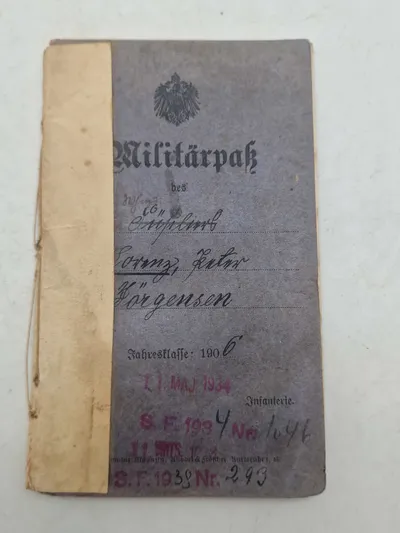 Militärpaß
des
Lorenz, Peter
Jörgensen
Jahresklasse: 1906
11 MAJ 1934
Infanterie.
S.F. 1934 Nr. 1046
S.F. 1939 Nr. 293